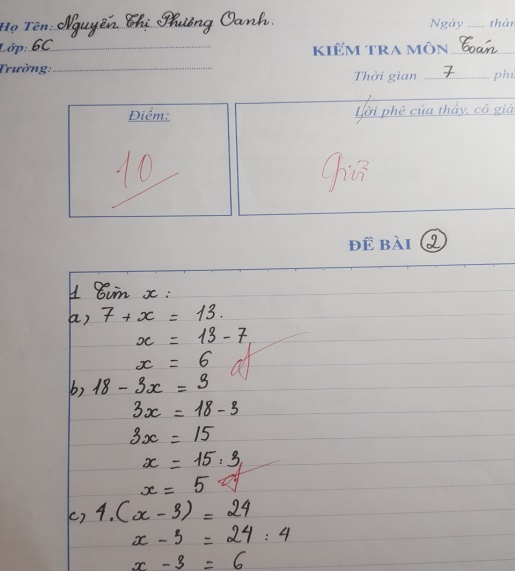 Họ Tên: Nguyễn Thị Phương Oanh. Ngày ..... thán
Lớp: 6C
KIỂM TRA MÔN Toán
Trường:
Thời gian 7 phú
Điểm:
Lời phê của thầy, cô giá
10
Giỏi
ĐỀ BÀI 2
1 Tìm x :
a, 7 + x = 13.
x = 13 - 7
x = 6
b, 18 - 3x = 3
3x = 18 - 3
3x = 15
x = 15 : 3
x = 5
c, 4.(x - 3) = 24
x - 3 = 24 : 4
x - 3 = 6